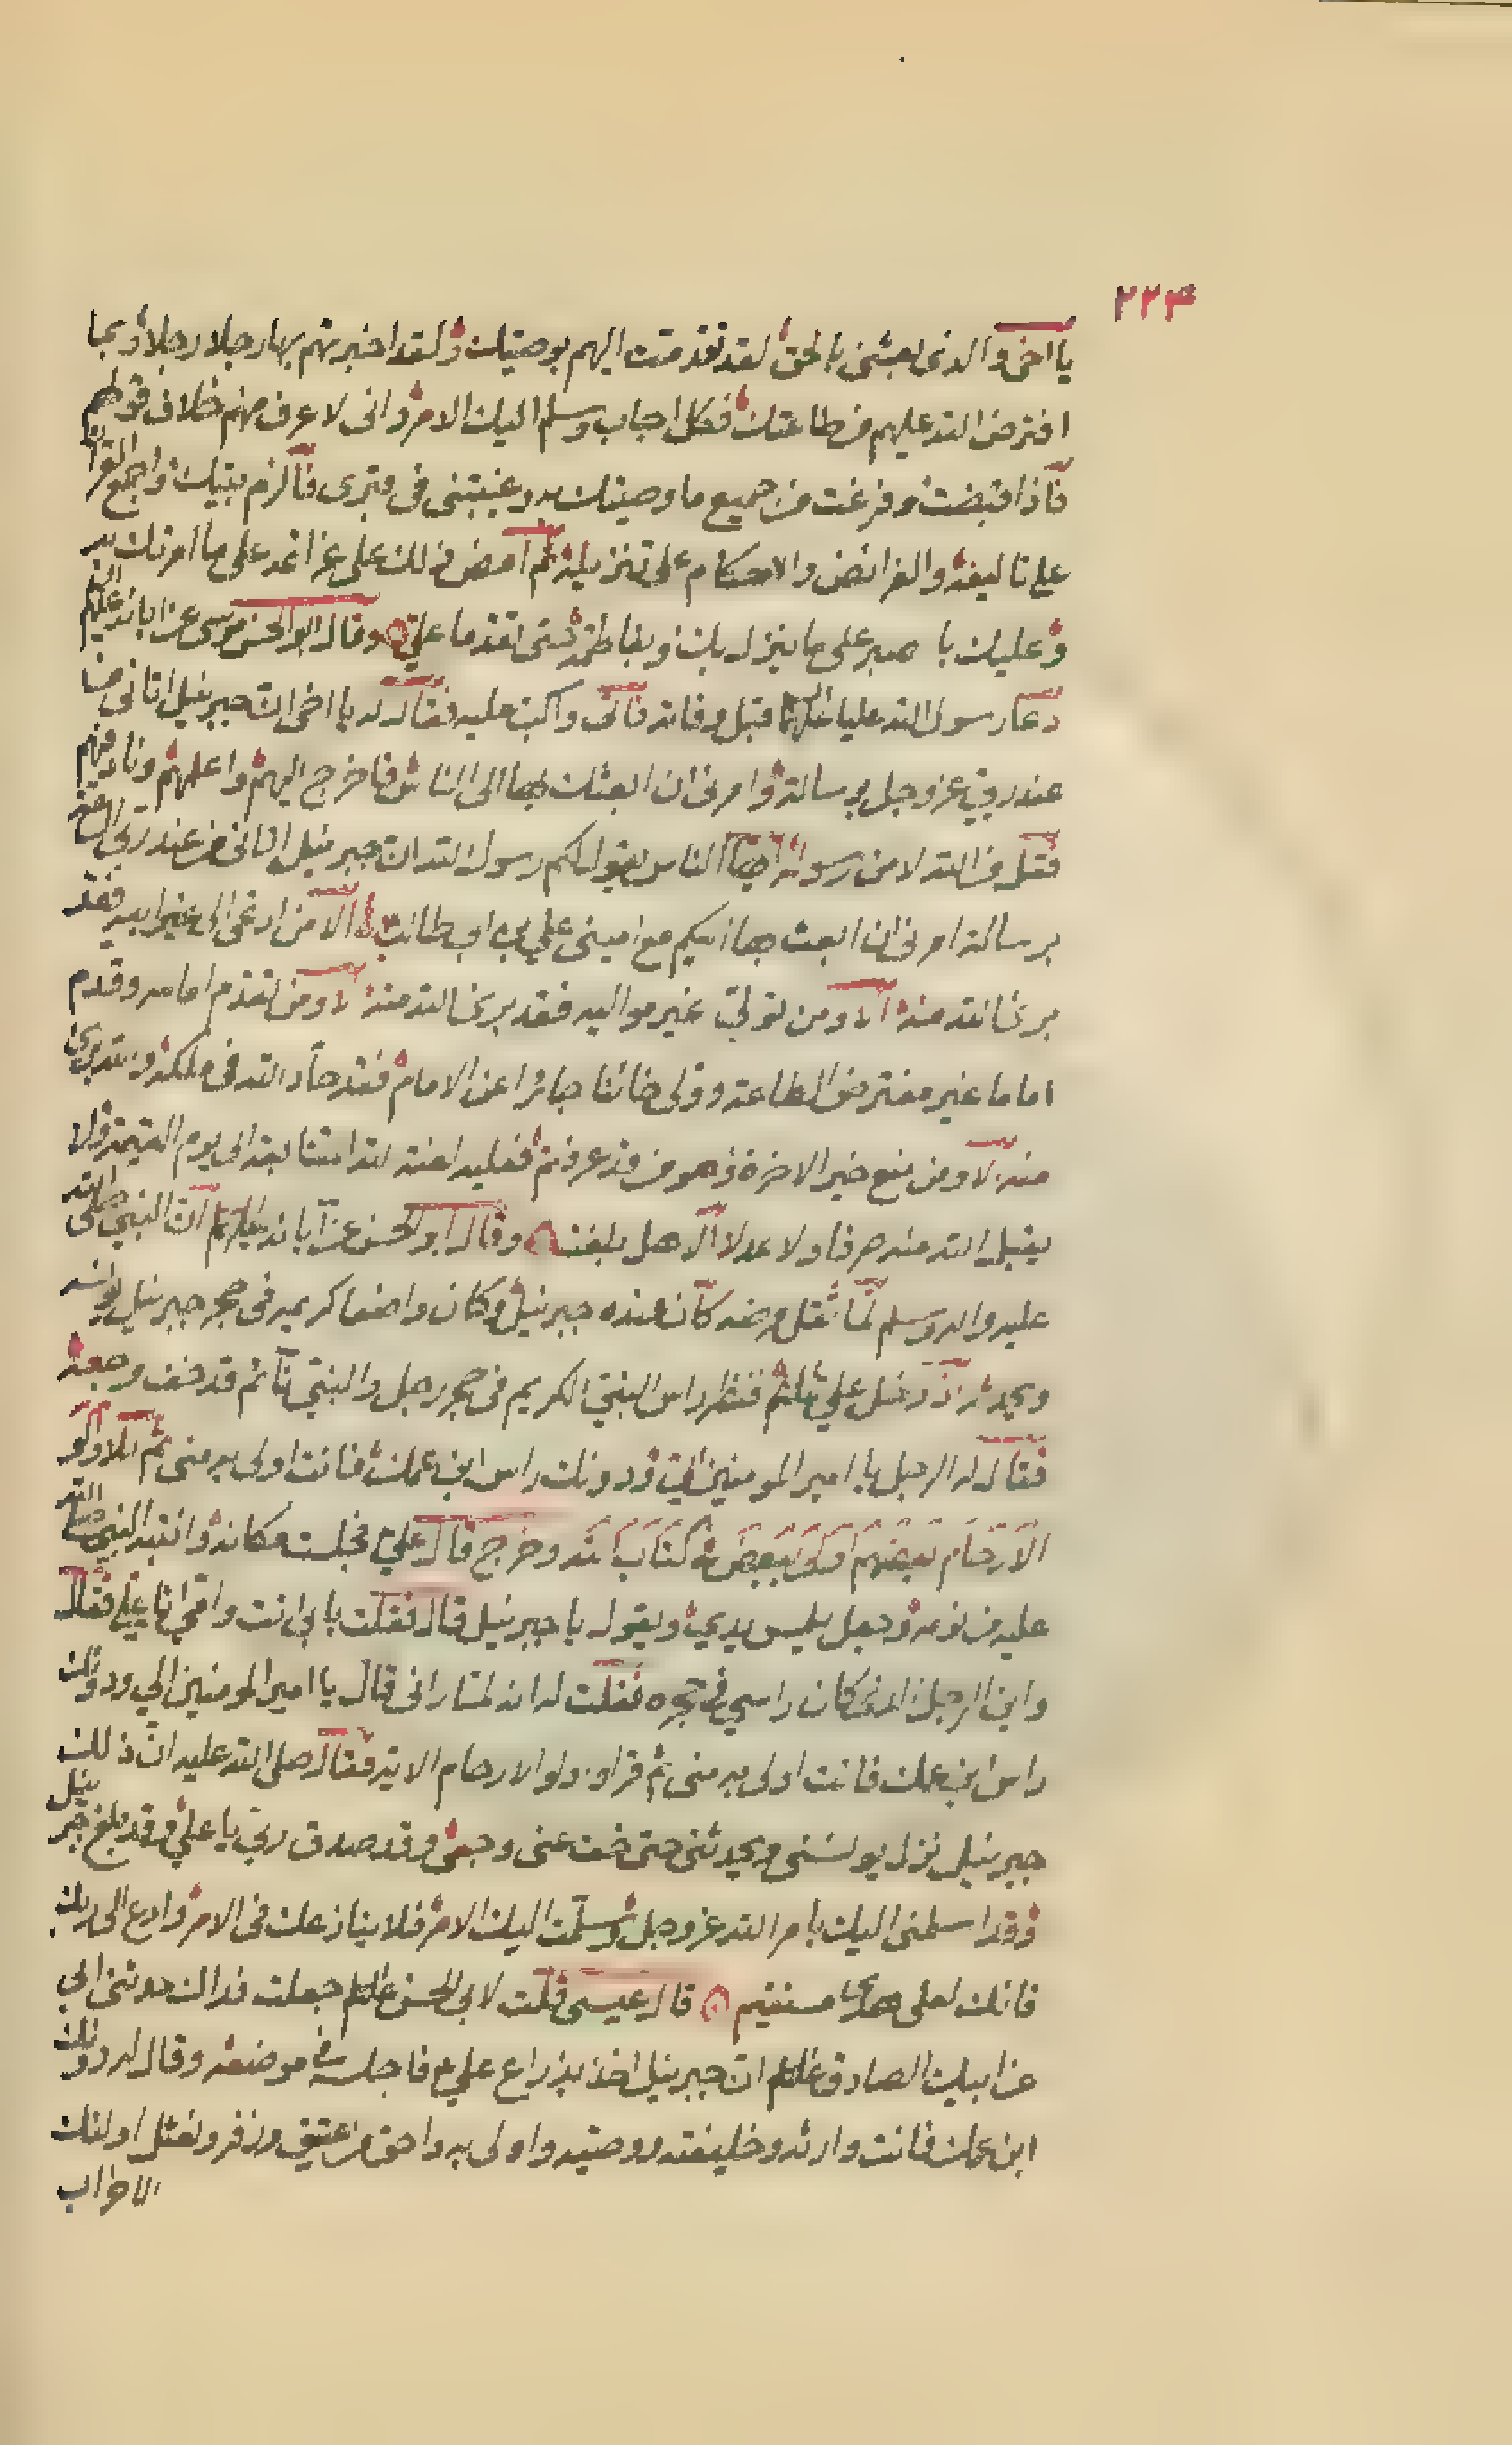 ٢٢٣
يا اخى والذى بعثنى بالحق لقد تقدمت اليهم بوصيتك ولقد اخبرتهم بها رجلا رجلا وبما
افترض الله عليهم من طاعتك فكل اجاب وسلم اليك الامر وانى لاعرف منهم خلاف قولهم
فاذا قبضت وفرغت من جميع ما وصيتك به وغيبتنى فى قبرى فالزم بيتك واجمع القرآن
على تاليفه والفرائض والاحكام على تنزيله ثم امض ذلك على عزائمه على ما امرتك به
وعليك با صبر على ما ينزل بك وبفاطمة حتى تقدما على وقال ابو الحسن موسى عن ابائه عليهم السلم
دعا رسول الله عليا عليهما السلم قبل وفاته فاكب عليه فقال له يا اخى ان جبرئيل اتانى من
عند ربى عز وجل برسالة وامرنى ان ابعثك بها الى الناس فاخرج اليهم واعلمهم وناد فيهم
فقل من الله لا من رسوله ايها الناس يقول لكم رسول الله ان جبرئيل اتانى من عند ربى الحق
برسالة امرنى ان ابعث بها اليكم مع امينى على بن ابى طالب الا من ادعى الى غير ابيه فقد
برئ الله منه الا ومن تولى غير مواليه فقد برئ الله منه الا ومن تقدم امامه وقدم
اماما غير مفترض الطاعة ووالى خائنا جائرا عن الامام فقد حاد الله فى ملكه والله برئ
منه الا ومن منع خير الاخرة وهو من قد عرفتم فعليه لعنة الله متتابعة الى يوم القيمة ولا
يقبل الله منه صرفا ولا عدلا الا هل بلغت وقال ابو الحسن عن ابائه عليهم السلم ان النبى صلى الله
عليه واله وسلم لما ثقل مرضه كان عنده جبرئيل وكان واضعا كريمه فى حجر جبرئيل يونسه
ويحدثه اذ دخل على عليه السلم فنظر راس النبى الكريم فى حجر رجل والنبى نائم قد خف وجعه
فقال له الرجل يا امير المومنين الى ودونك راس ابن عمك فانت اولى به منى ثم تلا واولو
الارحام بعضهم اولى ببعض فى كتاب الله وخرج قال على فجلست مكانه وانتبه النبى صلى الله
عليه من نومه وجعل يلمس يدى ويقول يا جبرئيل قال فقلت بابى انت وامى انا على فقال
واين الرجل الذى كان راسى فى حجره فقلت له انه لما رانى قال يا امير المومنين الى ودونك
راس ابن عمك فانت اولى به منى ثم قرا واولوا الارحام الاية فقال صلى الله عليه ان ذلك
جبرئيل نزل يونسنى ويحدثنى حتى خف عنى وجعى وقد صدق ربى يا على وقد بلغ جبرئيل
وقد اسلمنى اليك بامر الله عز وجل وسلمت اليك الامر فلا ينازعك فى الامر وادع الى ربك
فانك لعلى هدى مستقيم قال عيسى قلت لابى الحسن عليه السلم جعلت فداك حدثنى ابى
عن ابيك الصادق عليه السلم ان جبرئيل اخذ بذراع على فاجلسه فى موضعه وقال له دونك
ابن عمك فانت وارثه وخليفته ووصيه واولى به واحق من عتيق وزفر ونعثل اولئك
الاحزاب